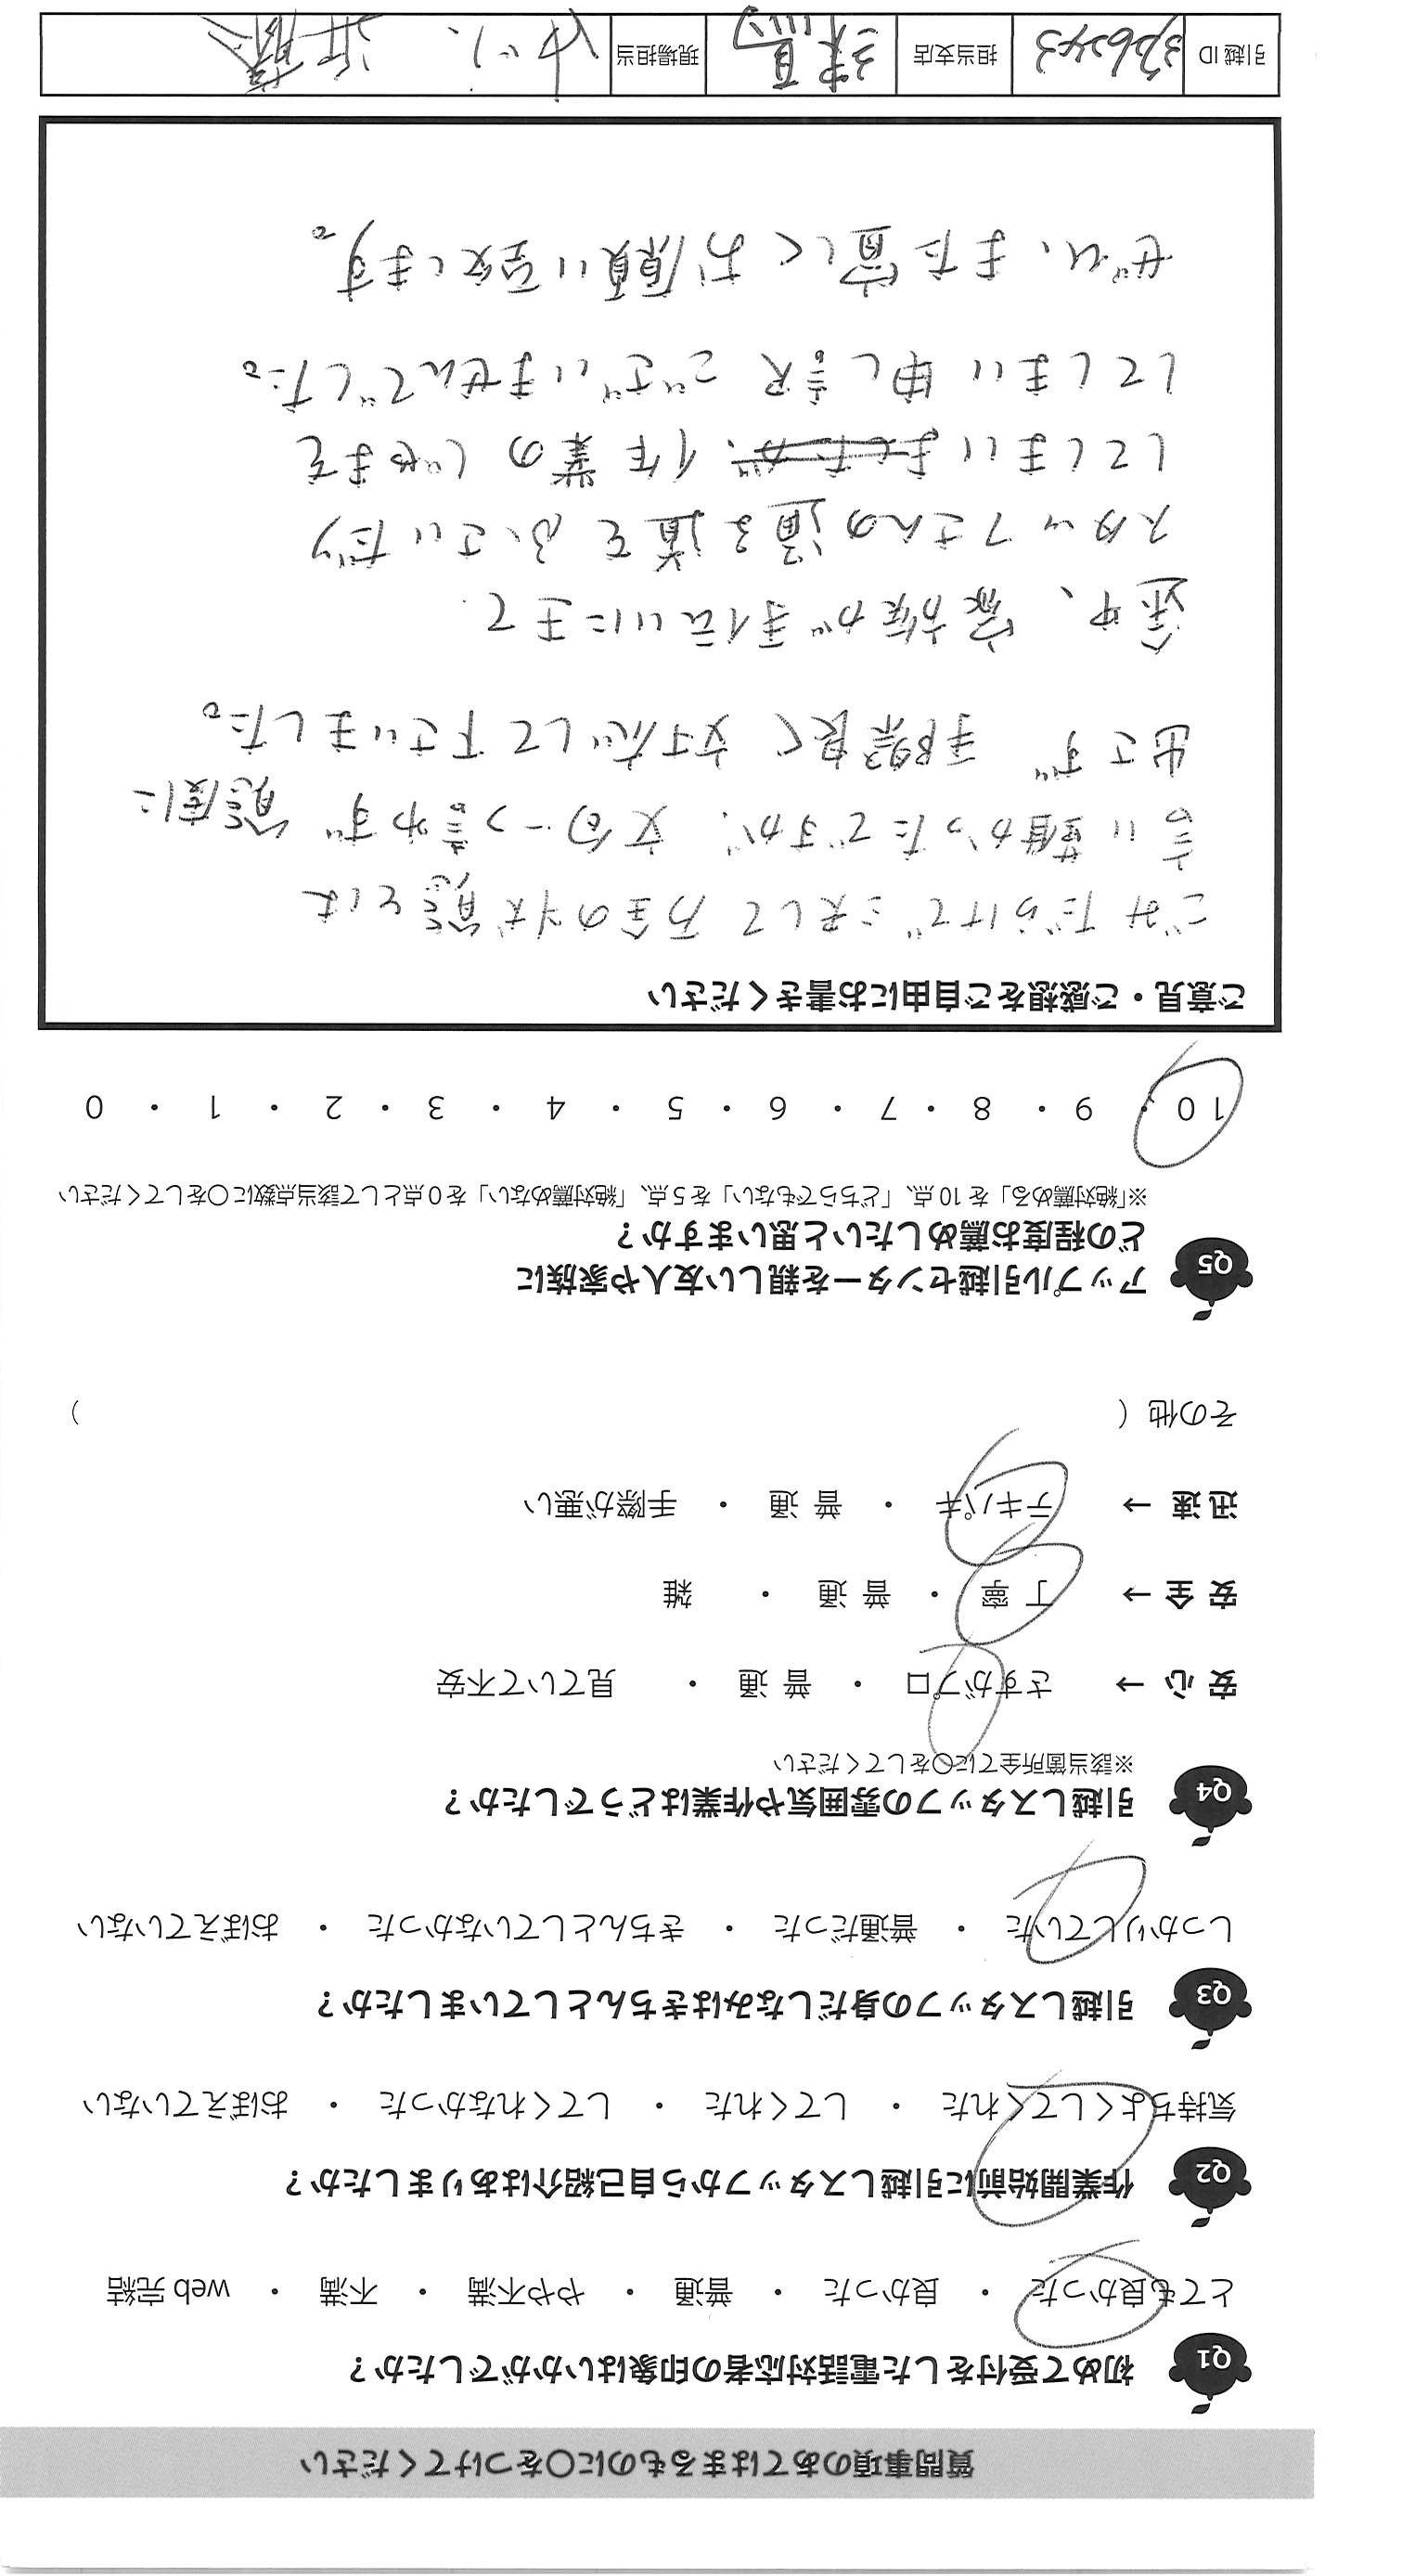 質問事項のあてはまるものに○をつけてください
Q1 初めて受付をした電話対応者の印象はいかがでしたか?
とても良かった ・ 良かった ・ 普通 ・ やや不満 ・ 不満 ・ web 完結
Q2 作業開始前に引越しスタッフから自己紹介はありましたか?
気持ちよくしてくれた ・ してくれた ・ してくれなかった ・ おぼえていない
Q3 引越しスタッフの身だしなみはきちんとしていましたか?
しっかりしていた ・ 普通だった ・ きちんとしていなかった ・ おぼえていない
Q4 引越しスタッフの雰囲気や作業はどうでしたか?
※該当箇所全てに○をしてください
安心 → さすがプロ ・ 普通 ・ 見ていて不安
安全 → 丁寧 ・ 普通 ・ 雑
迅速 → テキパキ ・ 普通 ・ 手際が悪い
その他 ( )
Q5 アップル引越センターを親しい友人や家族に
どの程度お薦めしたいと思いますか?
※「絶対薦める」を 10 点、「どちらでもない」を 5 点、「絶対薦めない」を 0 点として該当点数に○をしてください
10 ・ 9 ・ 8 ・ 7 ・ 6 ・ 5 ・ 4 ・ 3 ・ 2 ・ 1 ・ 0
ご意見・ご感想をご自由にお書きください
ごみだらけで 決して 万全の状態とは
言い難かったですが、文句一つ言わず 態度に
出さず 手際良く 対応して下さいました。
途中、家族が手伝いに来て
スタッフさんの通る道をふさいだり
してしまい 作業のじゃまを
してしまい 申し訳ございませんでした。
ぜひ、また宜しくお願い致します。
引越 ID
担当支店 練馬
現場担当